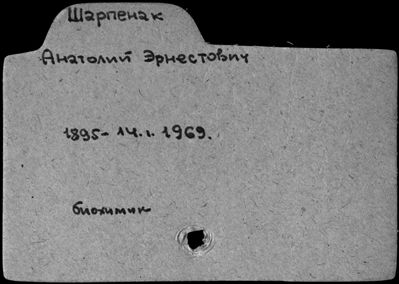 Шарпенак
Анатолий Эрнестович
1895- 14.I.1969.
биохимик